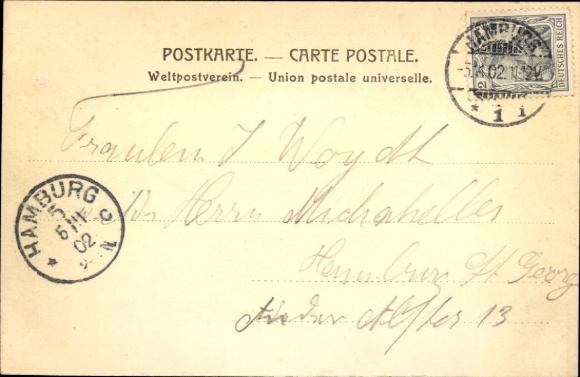 POSTKARTE. — CARTE POSTALE.
Weltpostverein. — Union postale universelle.
DEUTSCHES REICH
HAMBURG
02
* 1 i
Fräulein J Woydt
Herrn Michahelles
Hamburg St Georg
An der Alster 13
HAMBURG
5
02